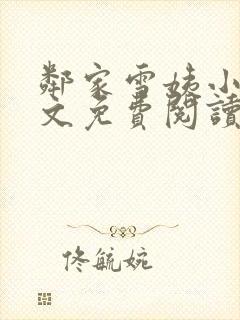 鄰家雪姨小
文免費閱讀
佟毓婉